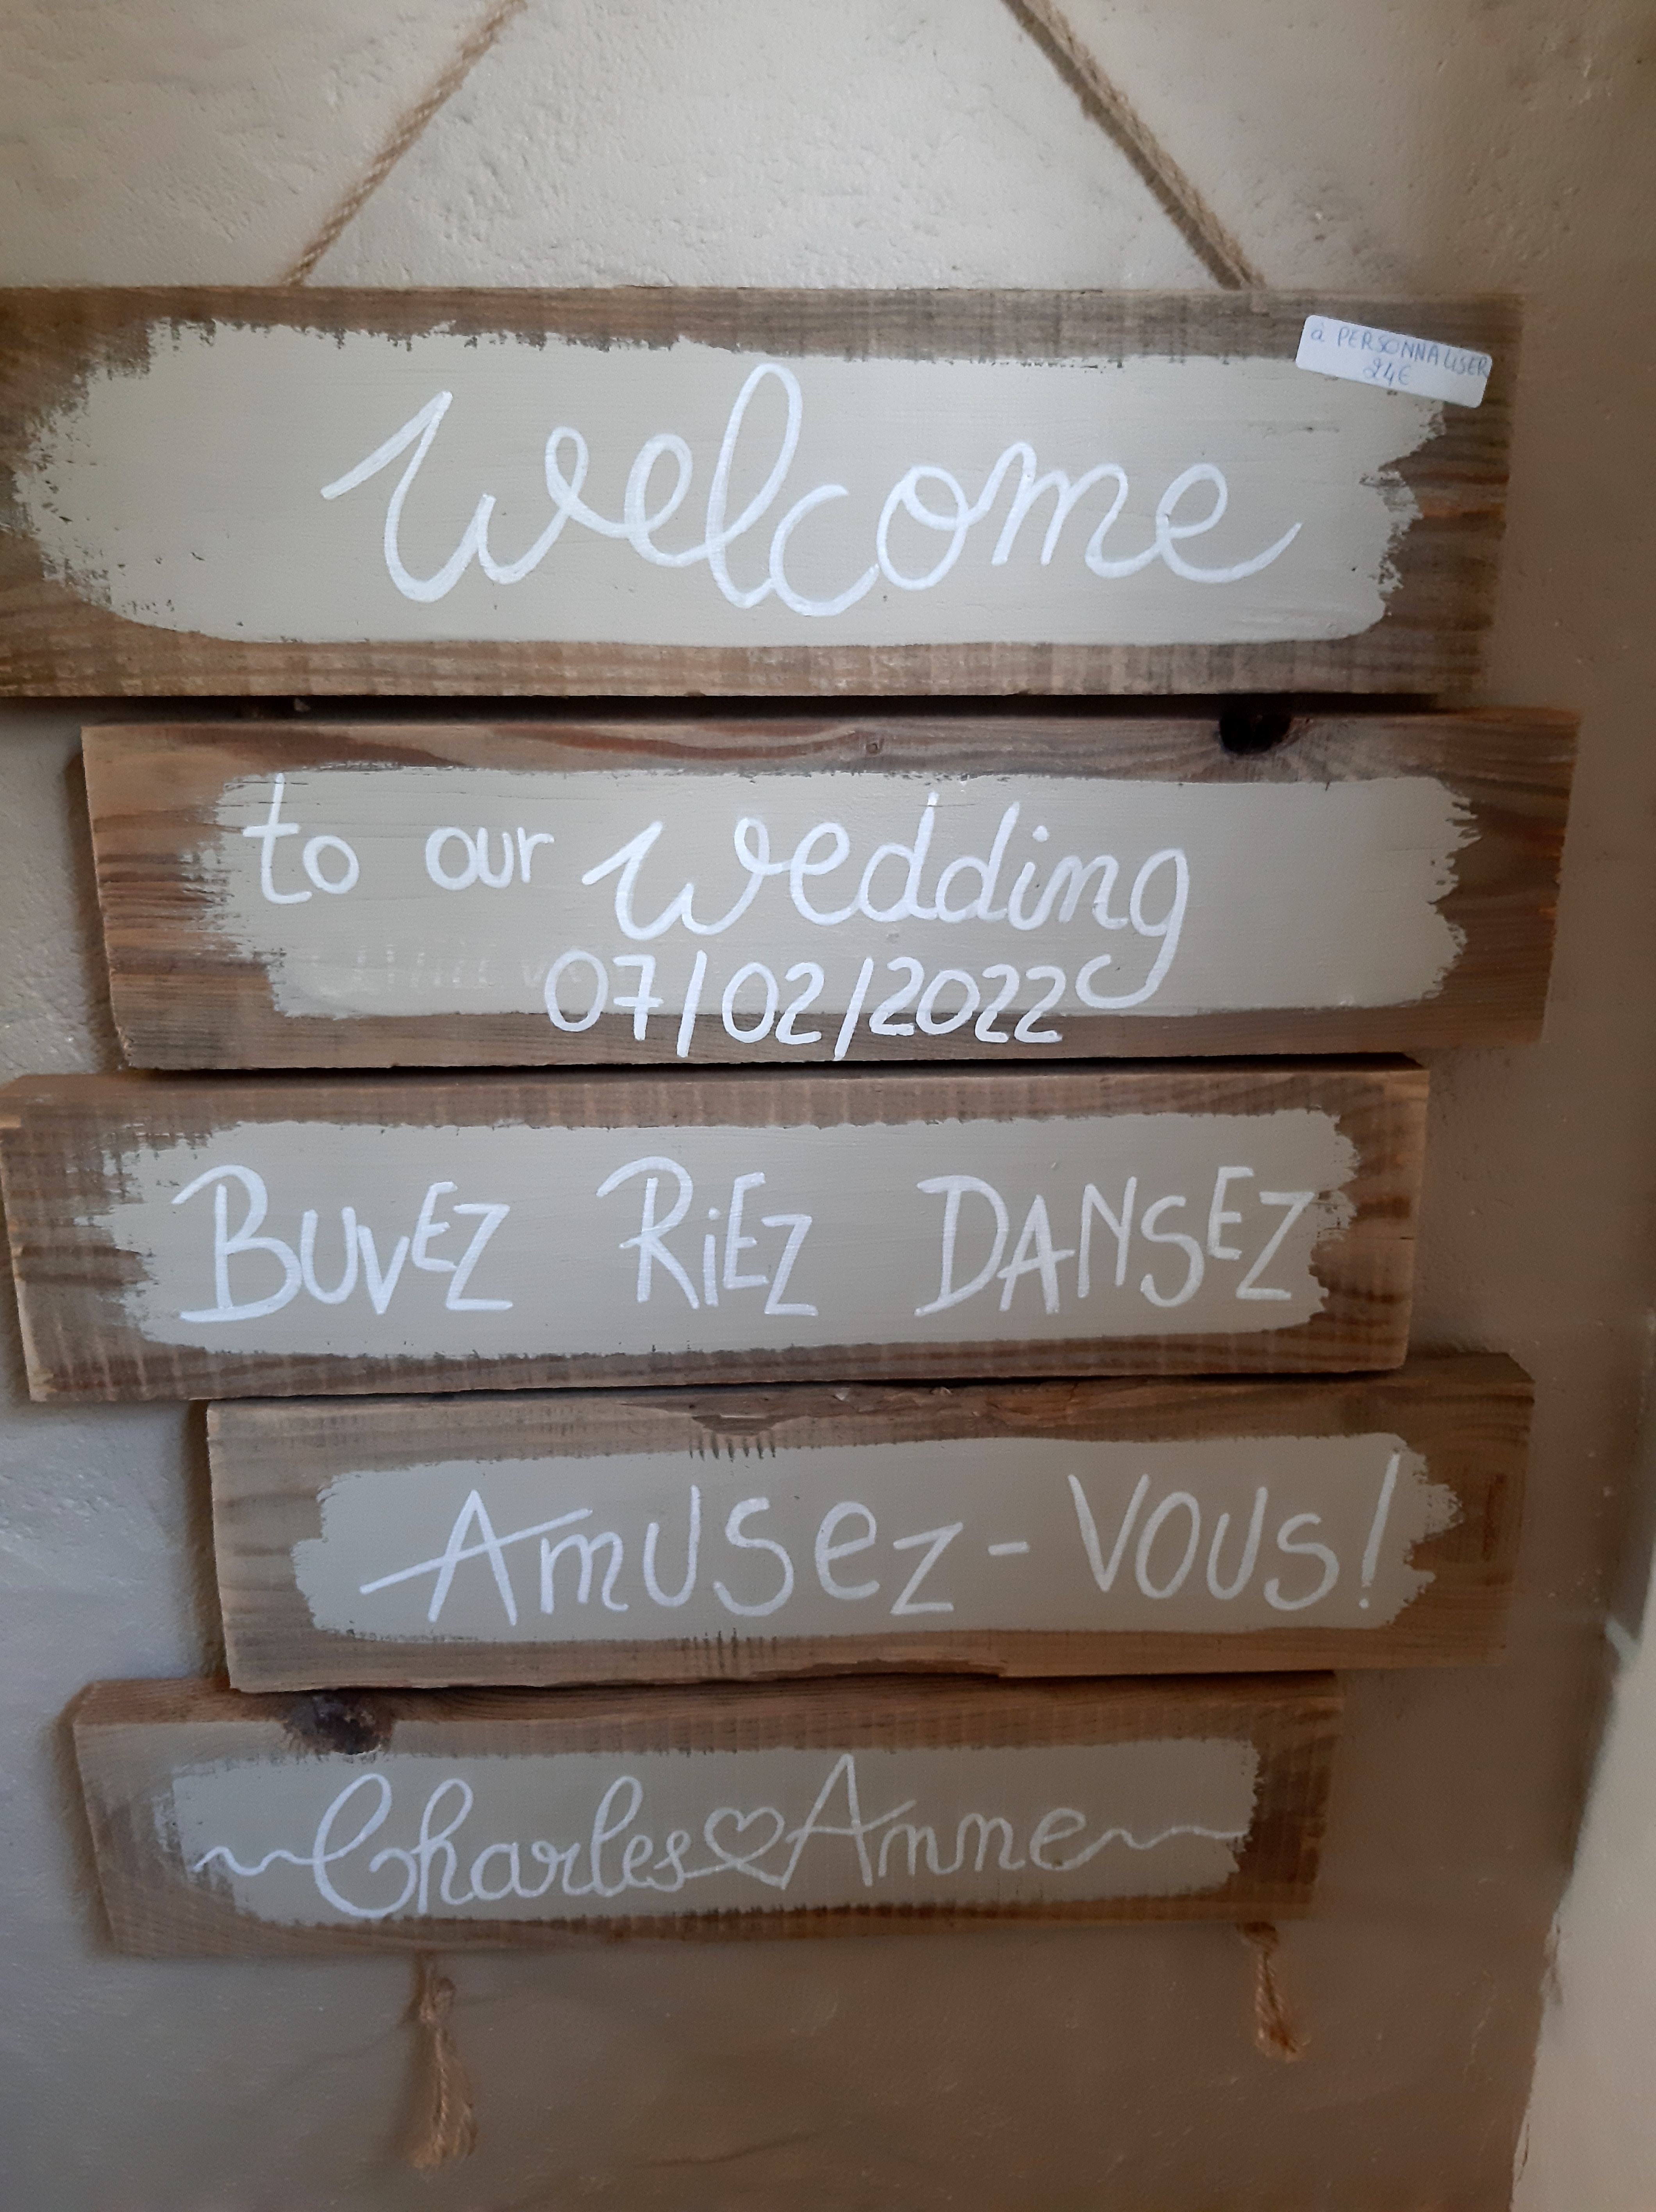 à PERSONNALISER
24€
Welcome
to our wedding
07/02/2022
BUVEZ RiEZ DANSEZ
AmUSeZ-VOUS!
Charles♡Anne